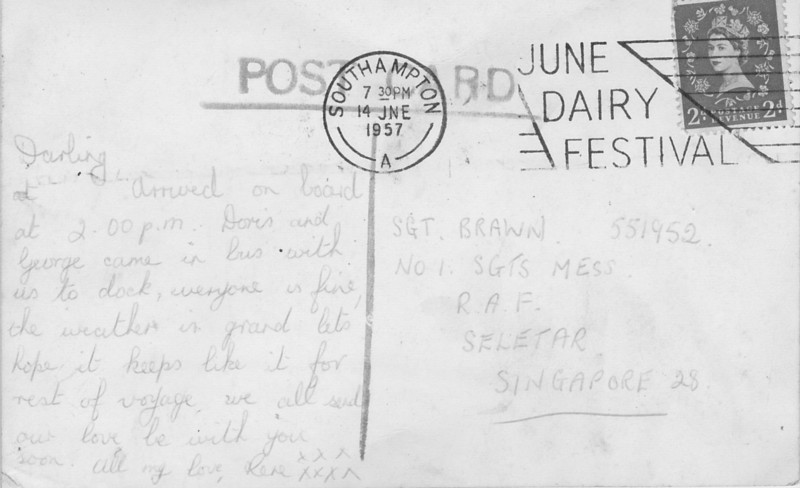 POST CARD
SOUTHAMPTON
7 30PM
14 JNE
1957
A
JUNE
DAIRY
FESTIVAL
2D POSTAGE REVENUE 2D
Darling
at Arrived on board
at 2.00 p.m. Doris and
George came in bus with
us to dock, everyone is fine,
the weather is grand lets
hope it keeps like it for
rest of voyage, we all send
our love, be with you
soon. All my love, Rene xxx
xxxx
SGT. BRAWN 551952.
NO 1. SGTS MESS.
R.A.F.
SELETAR
SINGAPORE 28.